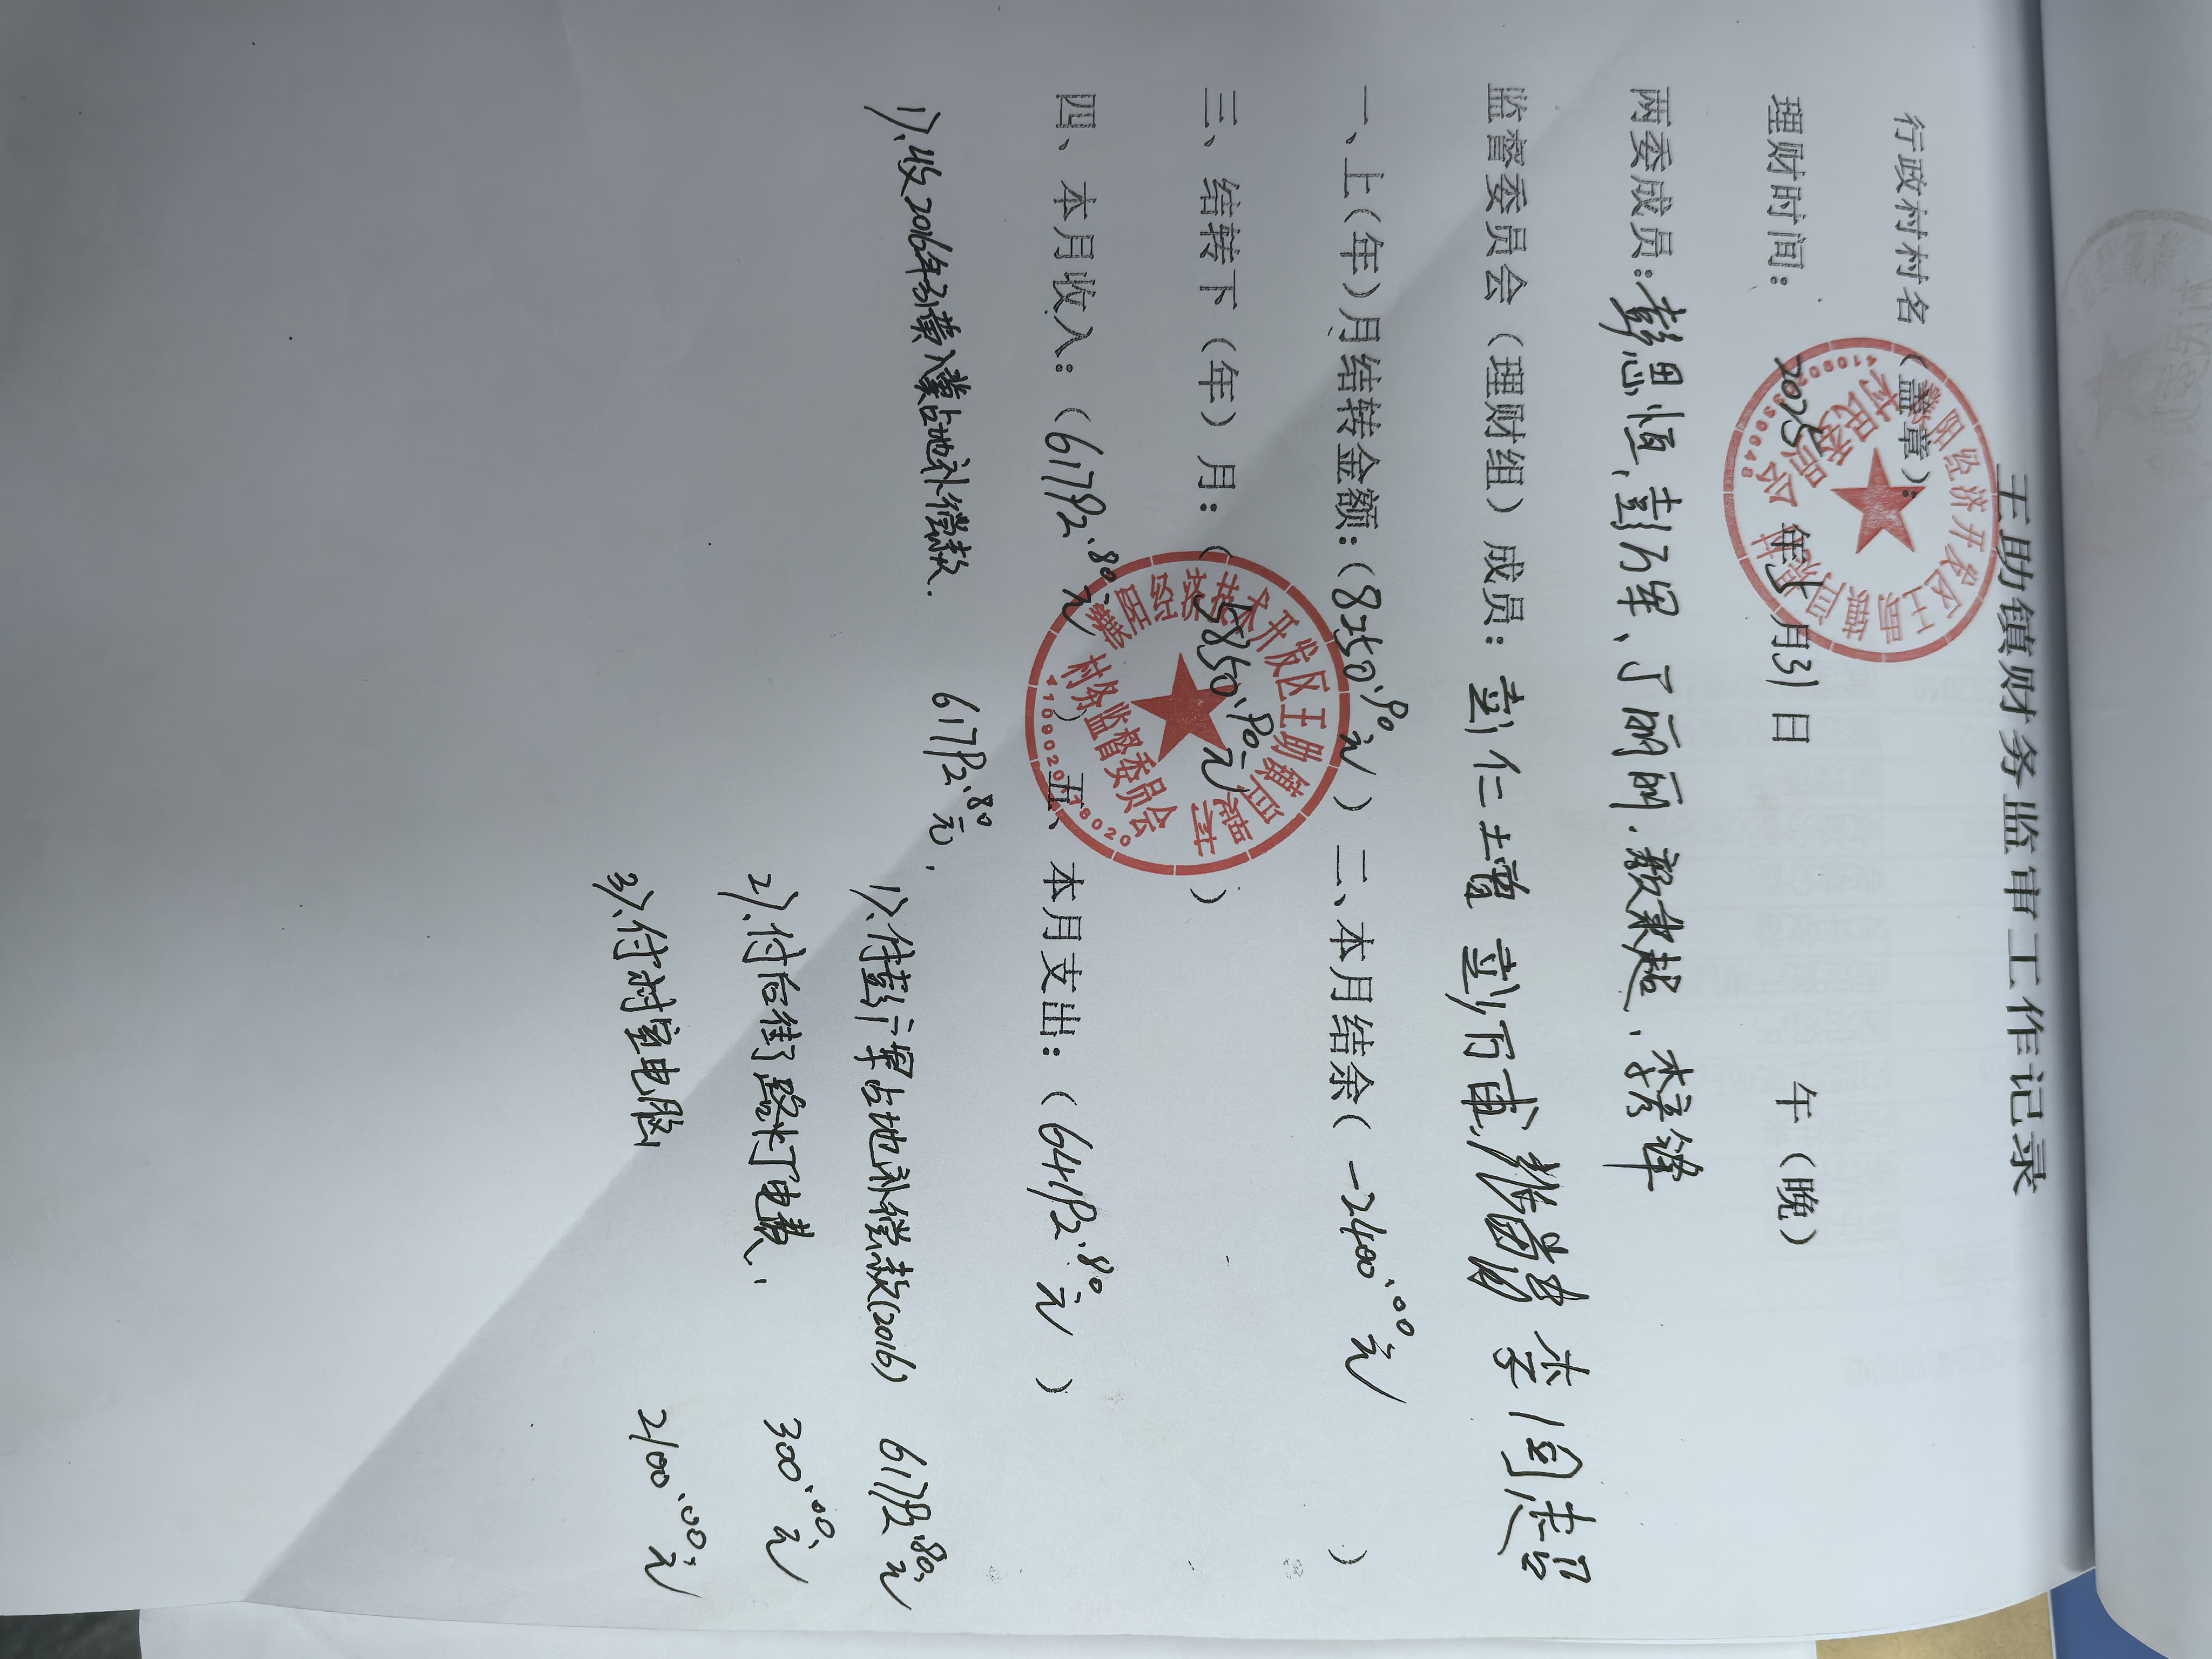 王助镇财务监审工作记录
行政村村名（盖章）：
理财时间： 2025 年 月31日 午（晚）
两委成员：彭恩恒、彭 军、丁丽丽、颜秉超、李彦锋
监督委员会（理财组）成员：彭仁增 彭 李 超
一、上（年）月结转金额：（8250.90元） 二、本月结余（ -2400.00元 ）
三、结转下（年）月：（ 5850.90元 ）
四、本月收入：（61792.80元 ） 五、本月支出：（64192.80元 ）
1）、收2016年引黄入冀占地补偿款. 61792.80元.
1）、付彭 军占地补偿款（2016） 61792.80元
2）、付后街路灯电费. 300.00元
3）、付村室电脑 2100.00元
濮阳经济开发区王助镇 村
村民委员会
濮阳经济技术开发区王助镇 村
村务监督委员会